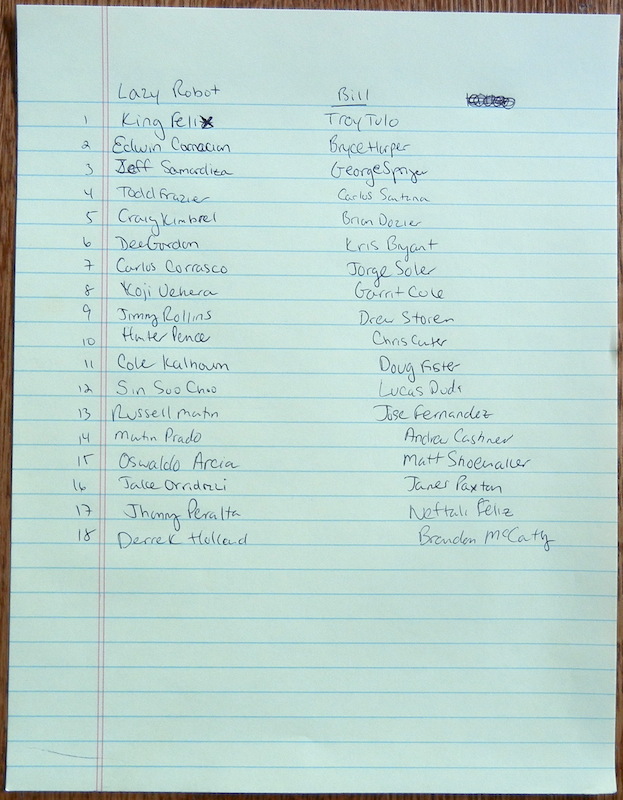 Lazy Robot Bill
1 King Felix Troy Tulo
2 Edwin Encarnacion Bryce Harper
3 Jeff Samardzea George Springer
4 Todd Frazier Carlos Santana
5 Craig Kimbrel Brian Dozier
6 Dee Gordon Kris Bryant
7 Carlos Corrasco Jorge Soler
8 Koji Uehera Garrit Cole
9 Jimmy Rollins Drew Storen
10 Hunter Pence Chris Carter
11 Cole Kalhoun Doug Fister
12 Sin Soo Choo Lucas Duda
13 Russell Martin Jose Fernandez
14 Martin Prado Andrew Cashner
15 Oswaldo Arcia Matt Shoemaker
16 Jake Orridozzi James Paxton
17 Jhonny Peralta Neftali Feliz
18 Derrek Holland Brandon McCarty